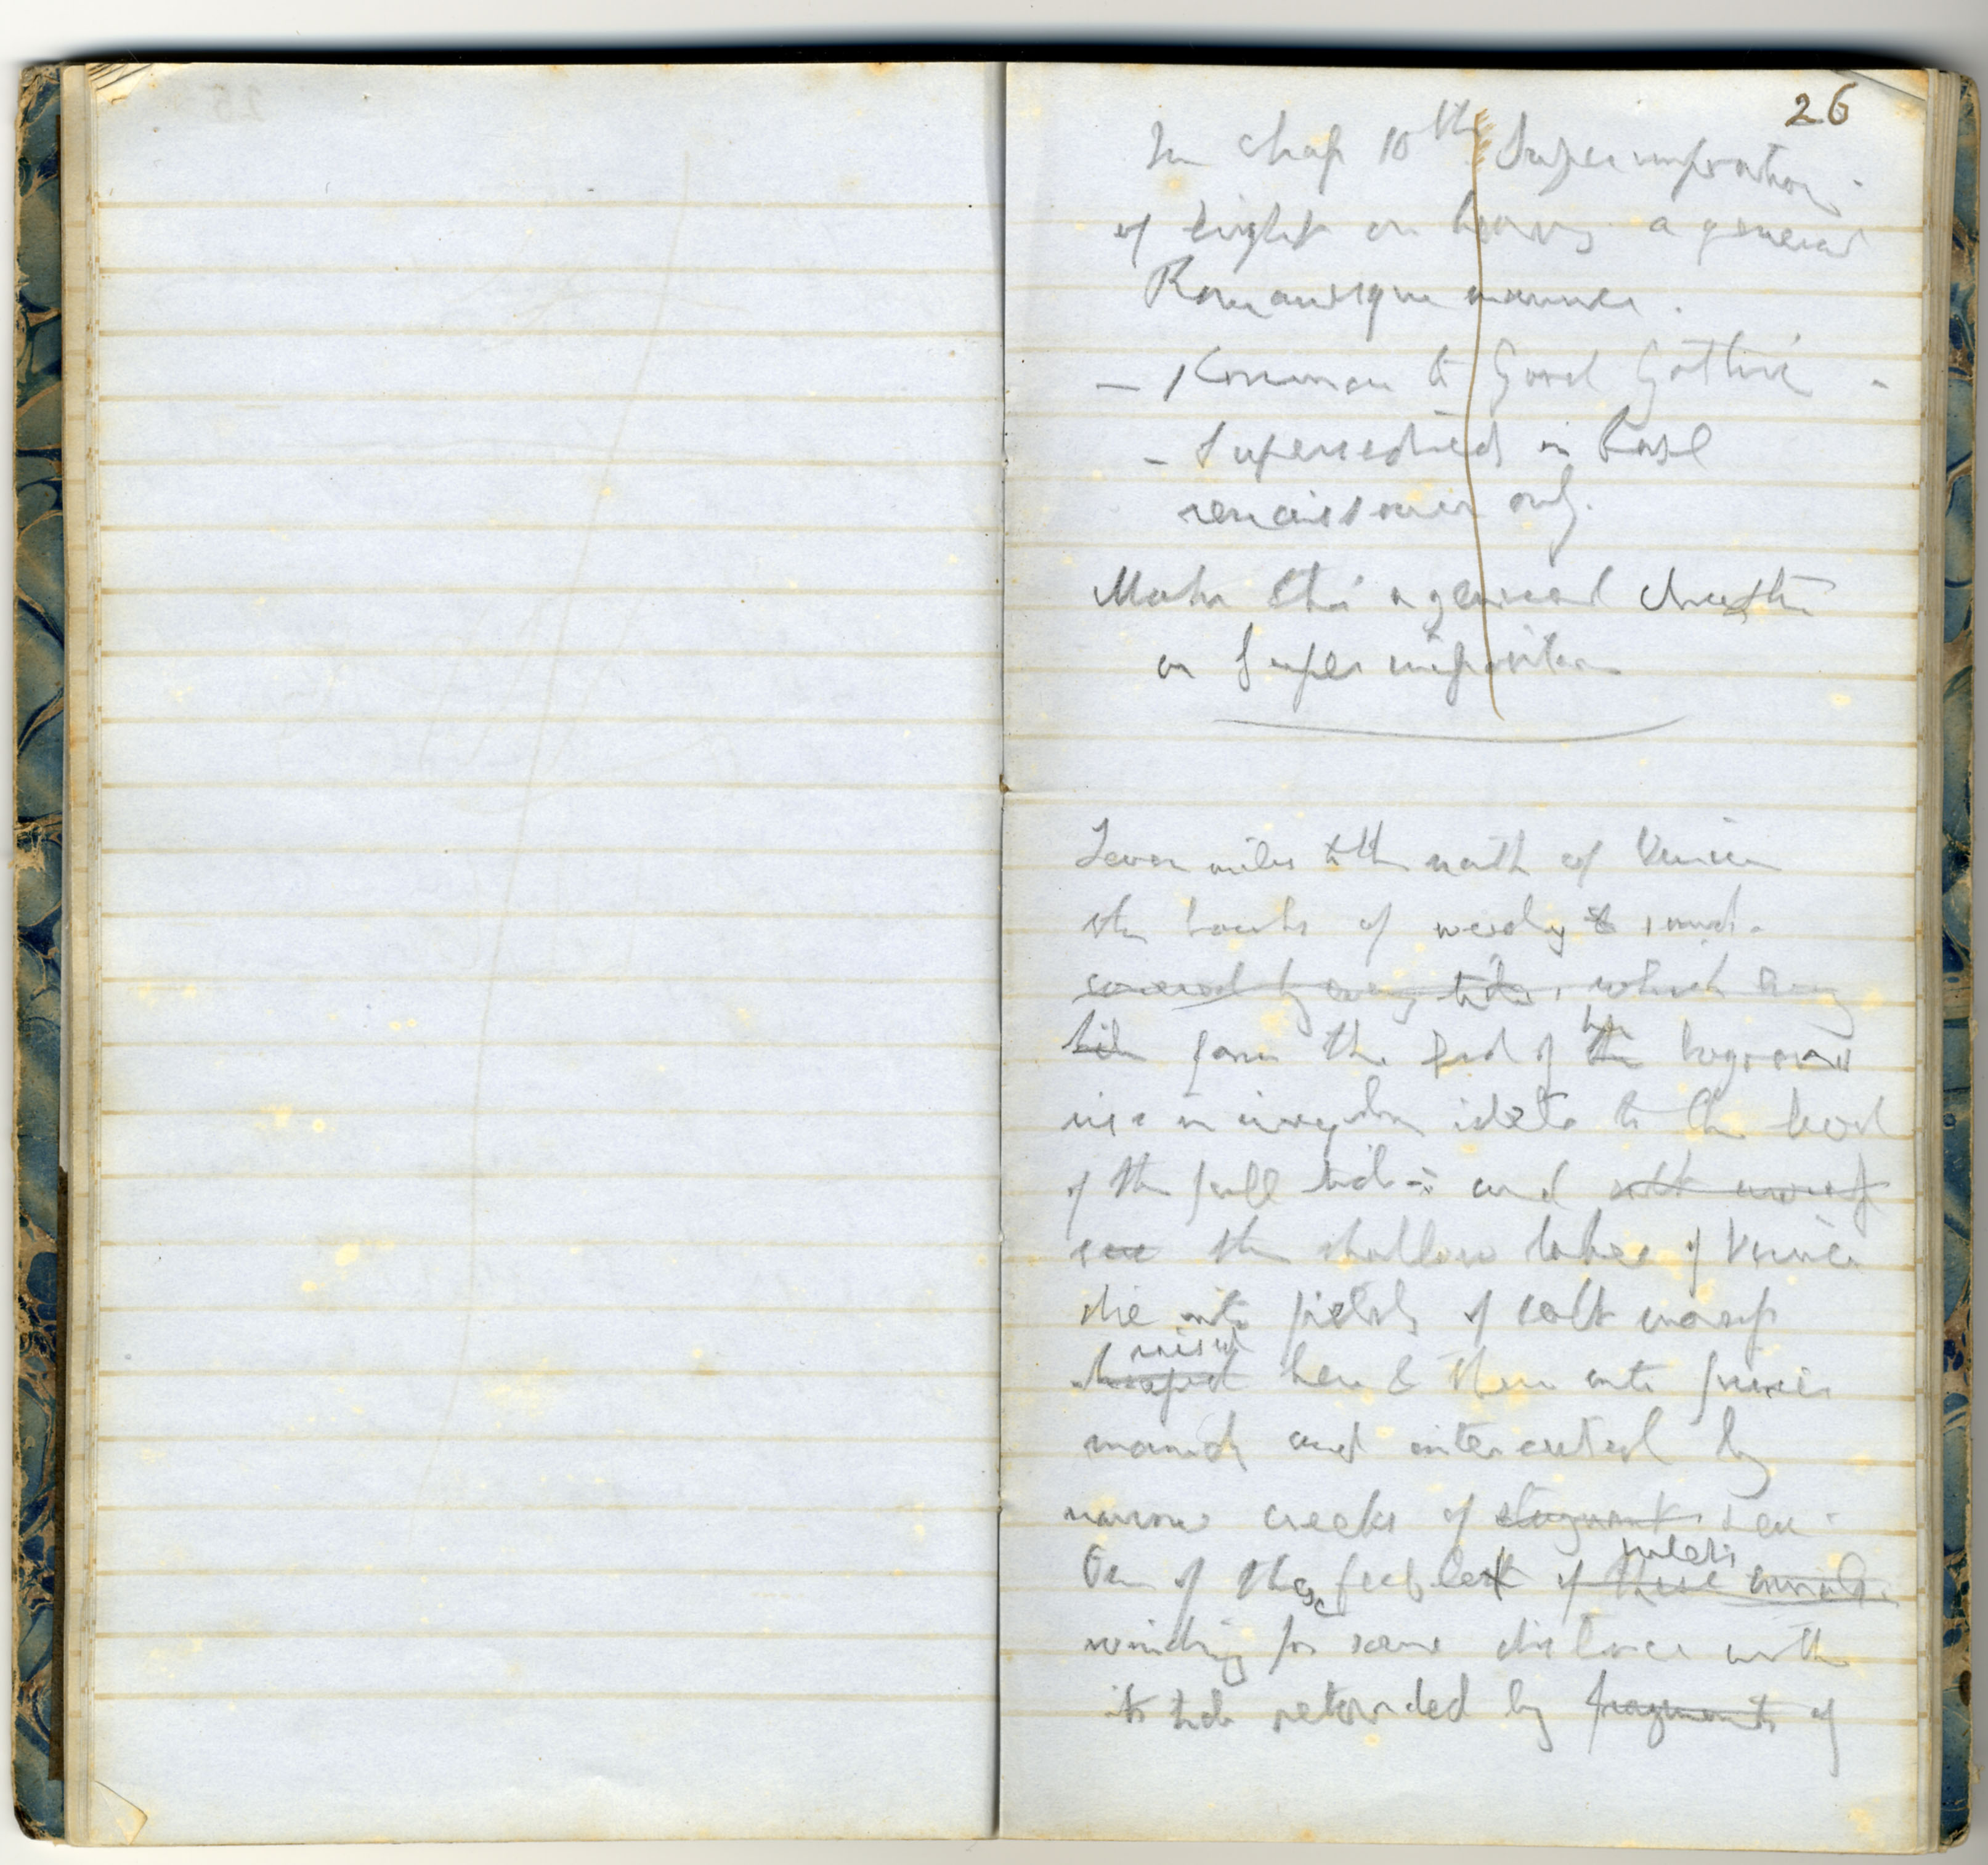 26
In chap 10th Superimposition
of light on heavy a general
Romanesque manner.
- Common to Good Gothic -
- Superseded in Base
renaissance only.
Make this a general
on Superimposition
Seven miles to the north of Venice
the banks of weedy & sand.
covered by every tide, which every
tide form the bed of the her lagoons
rise in irregular islets to the level
of the full tide - and salt marsh
see the shallow lakes of Venice
die into fields of salt marsh
raised
heaped here & there into
mounds and intersected by
narrow creeks of stagnant sea.
inlets
One of the feeblest of these canals
winding for some distance with
its tide retarded by fragments of